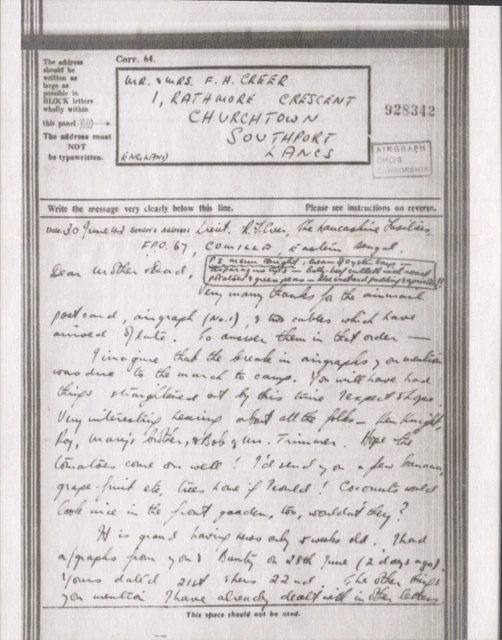 Corr. 64.
The address
should be
written as
large as
possible in
BLOCK letters
wholly within
this panel
The address must
NOT
be typewritten.
MR. & MRS. F. H. CREER
1, RATHMORE CRESCENT
CHURCHTOWN
SOUTHPORT
LANCS
ENGLAND
928342
AIRGRAPH
CENSORSHIP
Write the message very clearly below this line.
Please see instructions on reverse.
Date 30 June 43 Sender's Address: Lieut. R. F. Creer, The Lancashire Fusiliers
F.P.O. 67, COMILLA Eastern Bengal.
P.S. menu tonight, cream of oyster soup —
asparagus tips — bully beef cutlets and roast
potatoes & green peas —
Dear Mother & Dad,
Very many thanks for the
postcard, airgraph (No. 1), & two cables which have
arrived of late. To answer them in that order —
I imagine that the break in airgraphs you mention
was due to the march to camp. You will have had
things straightened out by this time I expect & hope.
Very interesting hearing about all the folks — Ken Knight,
Roy, Mary's brother, & Bob & Mr. Trimmer. Hope the
tomatoes come on well! I'd send you a few banana,
grape-fruit etc, trees home if I could! Coconuts would
look nice in the front garden, too, wouldn't they?
It is grand having news only 5 weeks old. I had
a/graphs from you & Bunty on 28th June (2 days ago).
Yours dated 21st hers 22nd. The other things
you mention I have already dealt with in other letters
This space should not be used.